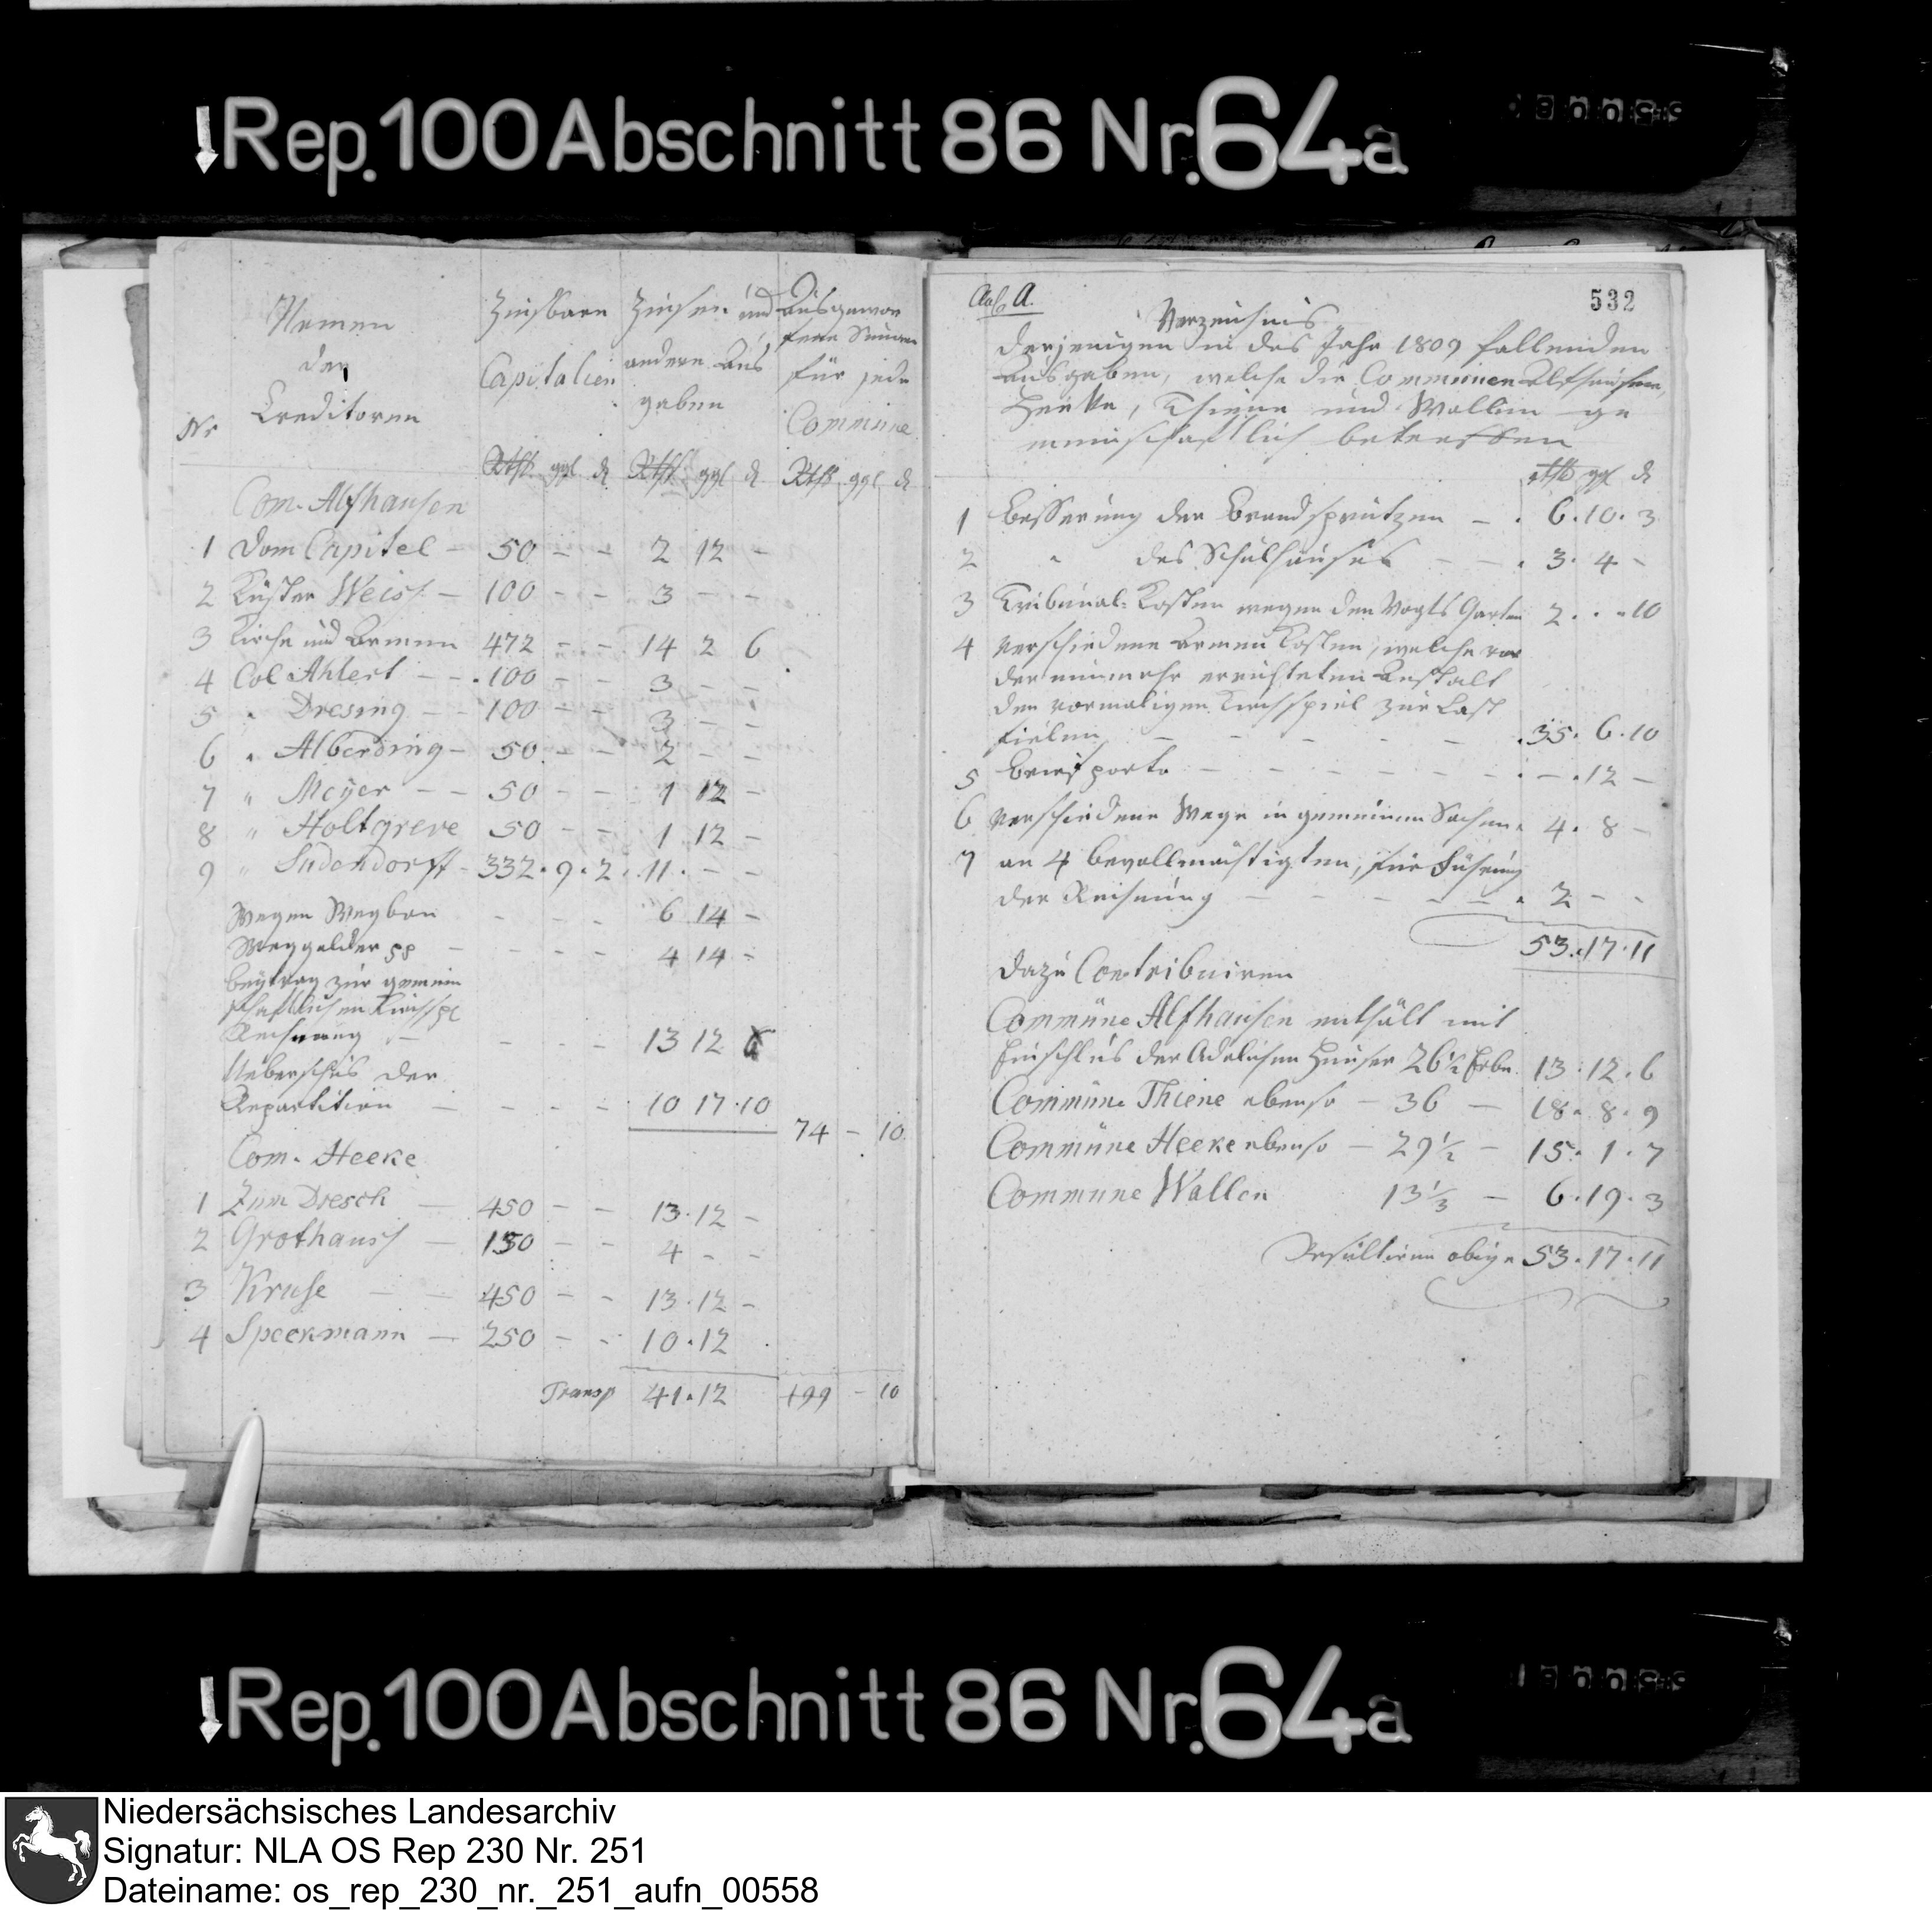 Rep. 100 Abschnitt 86 Nr. 64a
Nr
Namen
der
Creditoren
Zinsbare
Capitalien
Zinsen und
andere Aus
gaben
Ausgewor
fene Summe
für jede
Commüne
Rthlr ggl d Rthlr ggl d Rthlr ggl d
Com. Alfhausen
1 Dom Capitel - 50 - - 2 12 -
2 Küster Weis - 100 - - 3 - -
3 Kirche und Armen 472 - - 14 2 6
4 Col Ahlert - - 100 - - 3 - -
5 " Dresing - - 100 - - 3 - -
6 " Alberding - 50 - - 2 - -
7 " Meÿer - - 50 - - 1 12 -
8 " Holtgreve 50 - - 1 12 -
9 " Sudendorff - 332. 9. 2. 11. - -
Wegen Wegbau - - - 6 14 -
Weggelder pp - - - - 4 14 -
Beÿtrag zur gemein
schaftlichen Kirchspl
Rechnung - - - - 13 12 6
Ueberschus der
Repartition - - - - 10 17. 10
74 - 10
Com. Heeke
1 Zum Dresch - 450 - - 13. 12 -
2 Grothaus - 150 - - 4 - -
3 Kruse - - 450 - - 13. 12 -
4 Speckmann - 250 - - 10. 12
Transp 41. 12 +99 - 10
A.
532
Verzeichnis
derjenigen in das Jahr 1809 fallenden
Ausgaben, welche die Communen Alfhausen,
Heeke, Thiene und Wallen ge
meinschaftlich betreffen
Rthlr ggl d
1 Besserung der Brandsprützen - . 6. 10. 3
2 " des Schulhauses - - . 3. 4 -
3 Tribunal-Kosten wegen den Vogts Garten 2. . . 10
4 Verschiedene Armen Kosten, welche vor
der nunmehr errichteten Anstalt
den vormaligen Kirchspiel zur Last
fielen - - - - - . 35. 6. 10
5 Briefporto - - - - - - . - . 12 -
6 Verschiedene Wege in gemeinen Sachen. 4. 8 -
7 an 4 bevollmächtigten, für Führung
der Rechnung - - - - - . 2 - -
53. 17. 11
Dazu Contribuiren
Commüne Alfhausen enthält mit
Einschlus der Adelichen Häuser 26 1/2 Erbe. 13. 12. 6
Commüne Thiene ebenso - 36 - 18. 8. 9
Commüne Heeke ebenso - 29 1/2 - 15. 1. 7
Commune Wallen 13 1/3 - 6. 19. 3
Resultiren obige 53. 17. 11
Rep. 100 Abschnitt 86 Nr. 64a
Niedersächsisches Landesarchiv
Signatur: NLA OS Rep 230 Nr. 251
Dateiname: os_rep_230_nr._251_aufn_00558